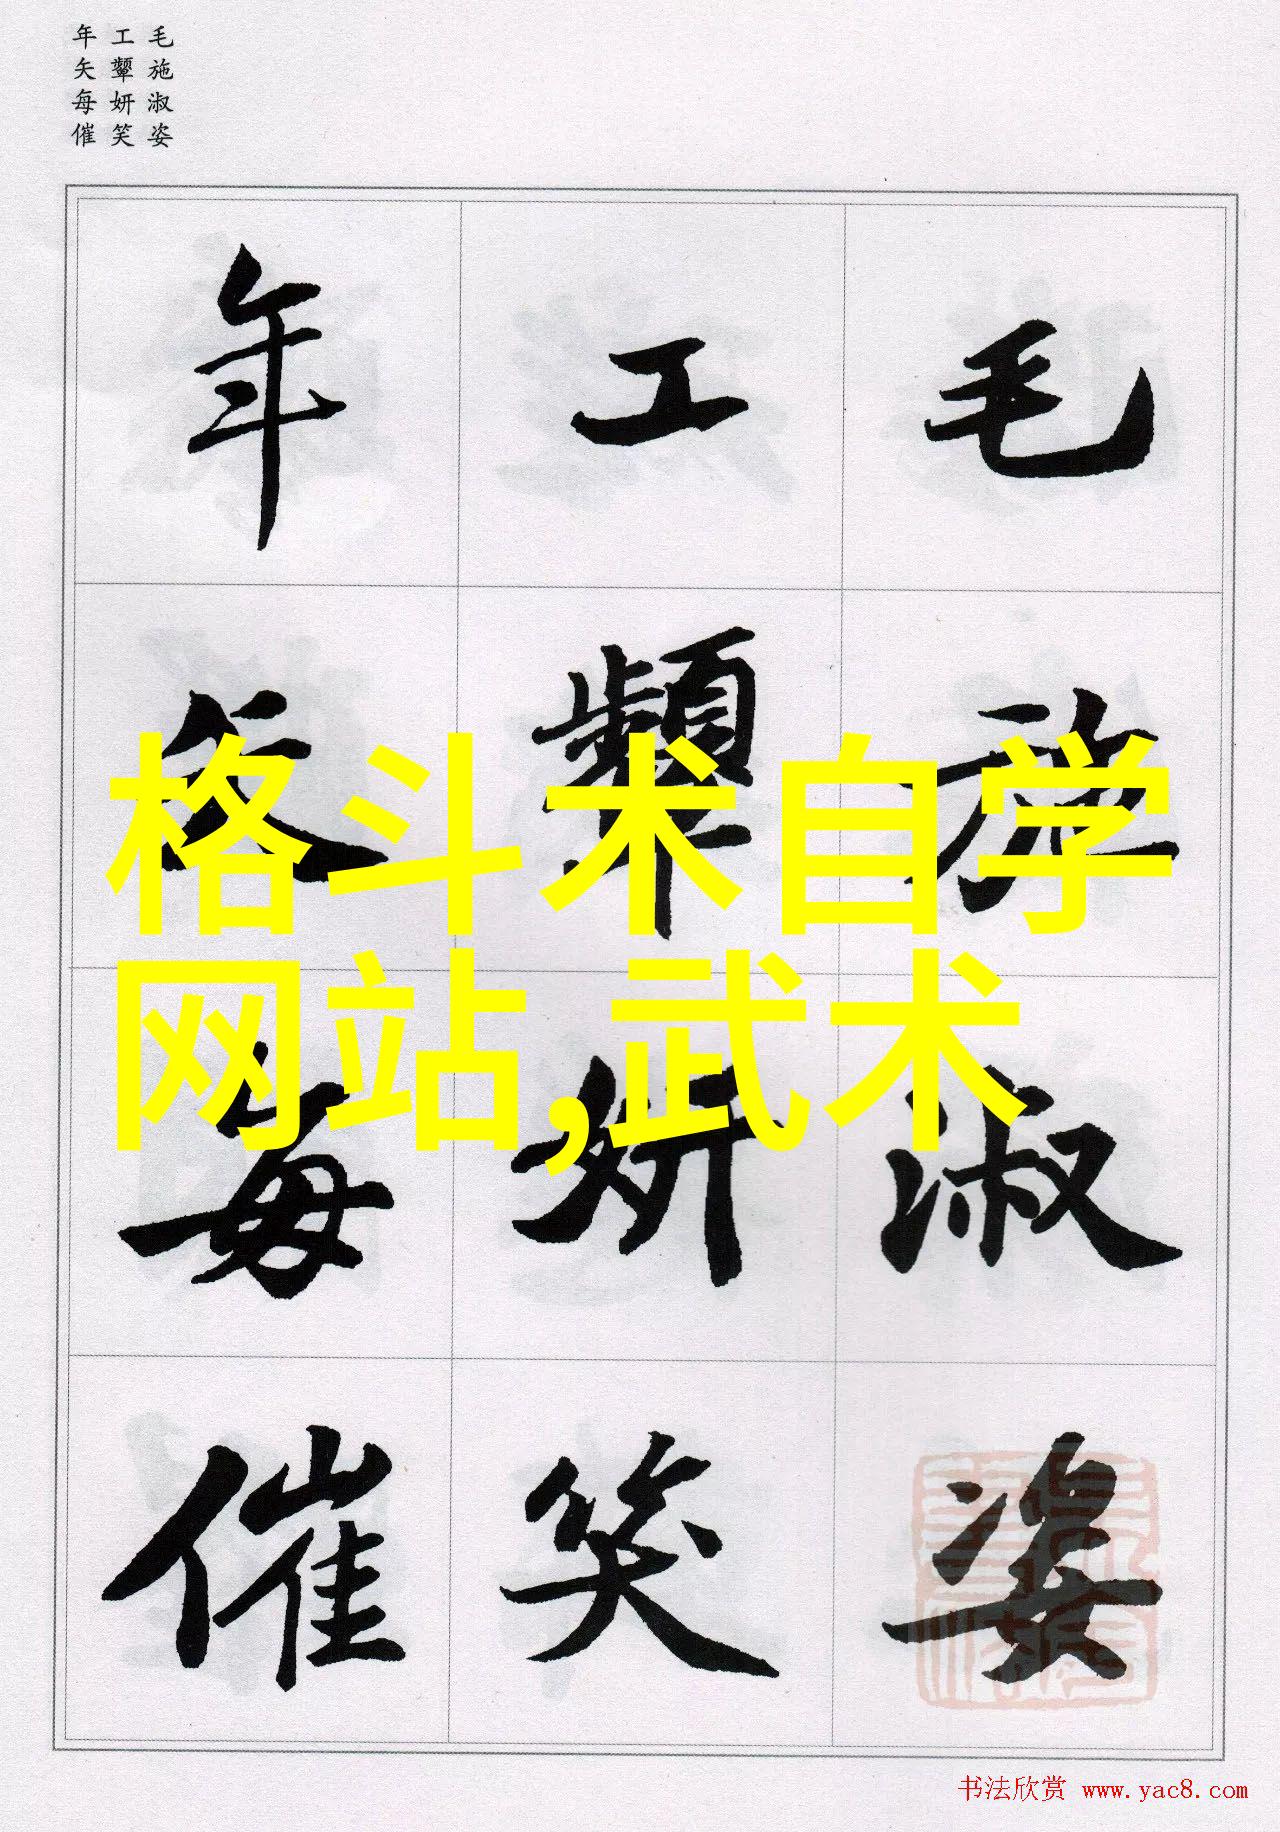 年工毛
矢颦施
每妍淑
催笑姿
年工毛
矢颦施
格斗术自学
网站,武术
每妍淑
催笑姿
书法欣赏 www.yac8.com